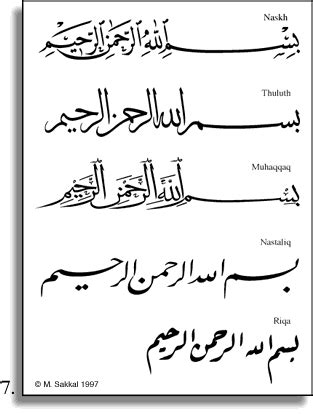 Naskh
بِسْمِ اللّٰهِ الرَّحْمٰنِ الرَّحِيْمِ
Thuluth
بسم الله الرحمن الرحيم
Muhaqqaq
بِسْمِ اللَّهِ الرَّحْمَنِ الرَّحِيْمِ
Nastaliq
بسم الله الرحمن الرحيم
Riqa
بسم الله الرحمن الرحيم
7.
© M. Sakkal 1997